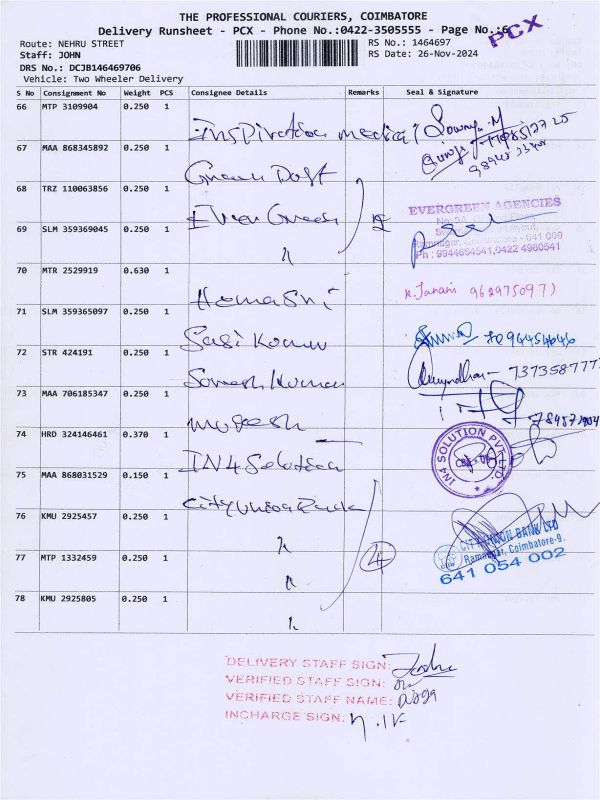 THE PROFESSIONAL COURIERS, COIMBATORE
Delivery Runsheet - PCX - Phone No.:0422-3505555 - Page No.:6
PCX
Route: NEHRU STREET
RS No.: 1464697
Staff: JOHN
RS Date: 26-Nov-2024
DRS No.: DCJB146469706
Vehicle: Two Wheeler Delivery
S No Consignment No Weight PCS Consignee Details Remarks Seal & Signature
66 MTP 3109904 0.250 1
Inspiration medical Sowmya.M
67 MAA 868345892 0.250 1
68 TRZ 110063856 0.250 1
Ever Green
EVERGREEN AGENCIES
69 SLM 359369045 0.250 1
Ramnagar, Coimbatore - 641 009
Ph : 9944654541,0422 4980541
70 MTR 2529919 0.630 1
HemaSri
K. Janani 9629750971
71 SLM 359365097 0.250 1
Sasi Kumar
72 STR 424191 0.250 1
Somesh Kumar
73 MAA 706185347 0.250 1
mugesh
74 HRD 324146461 0.370 1
IN4 Solution
IN4 SOLUTION PVT LTD.
75 MAA 868031529 0.150 1
City Union Bank
76 KMU 2925457 0.250 1
CITY UNION BANK LTD
Ramnagar, Coimbatore-9.
641 054 002
77 MTP 1332459 0.250 1
4
78 KMU 2925805 0.250 1
DELIVERY STAFF SIGN:
VERIFIED STAFF SIGN:
VERIFIED STAFF NAME:
INCHARGE SIGN: